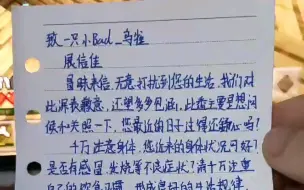 致一只小Bad_乌雀
展信佳
冒昧来信,无意打扰到您的生活,我们对
此深表歉意,还望多多包涵,此番主要是想问
候和关照一下,您最近的日子过得还顺心吗?
千万注意身体,您近来的身体状况可好?
是否有感冒、发烧等不良症状?请千万注重